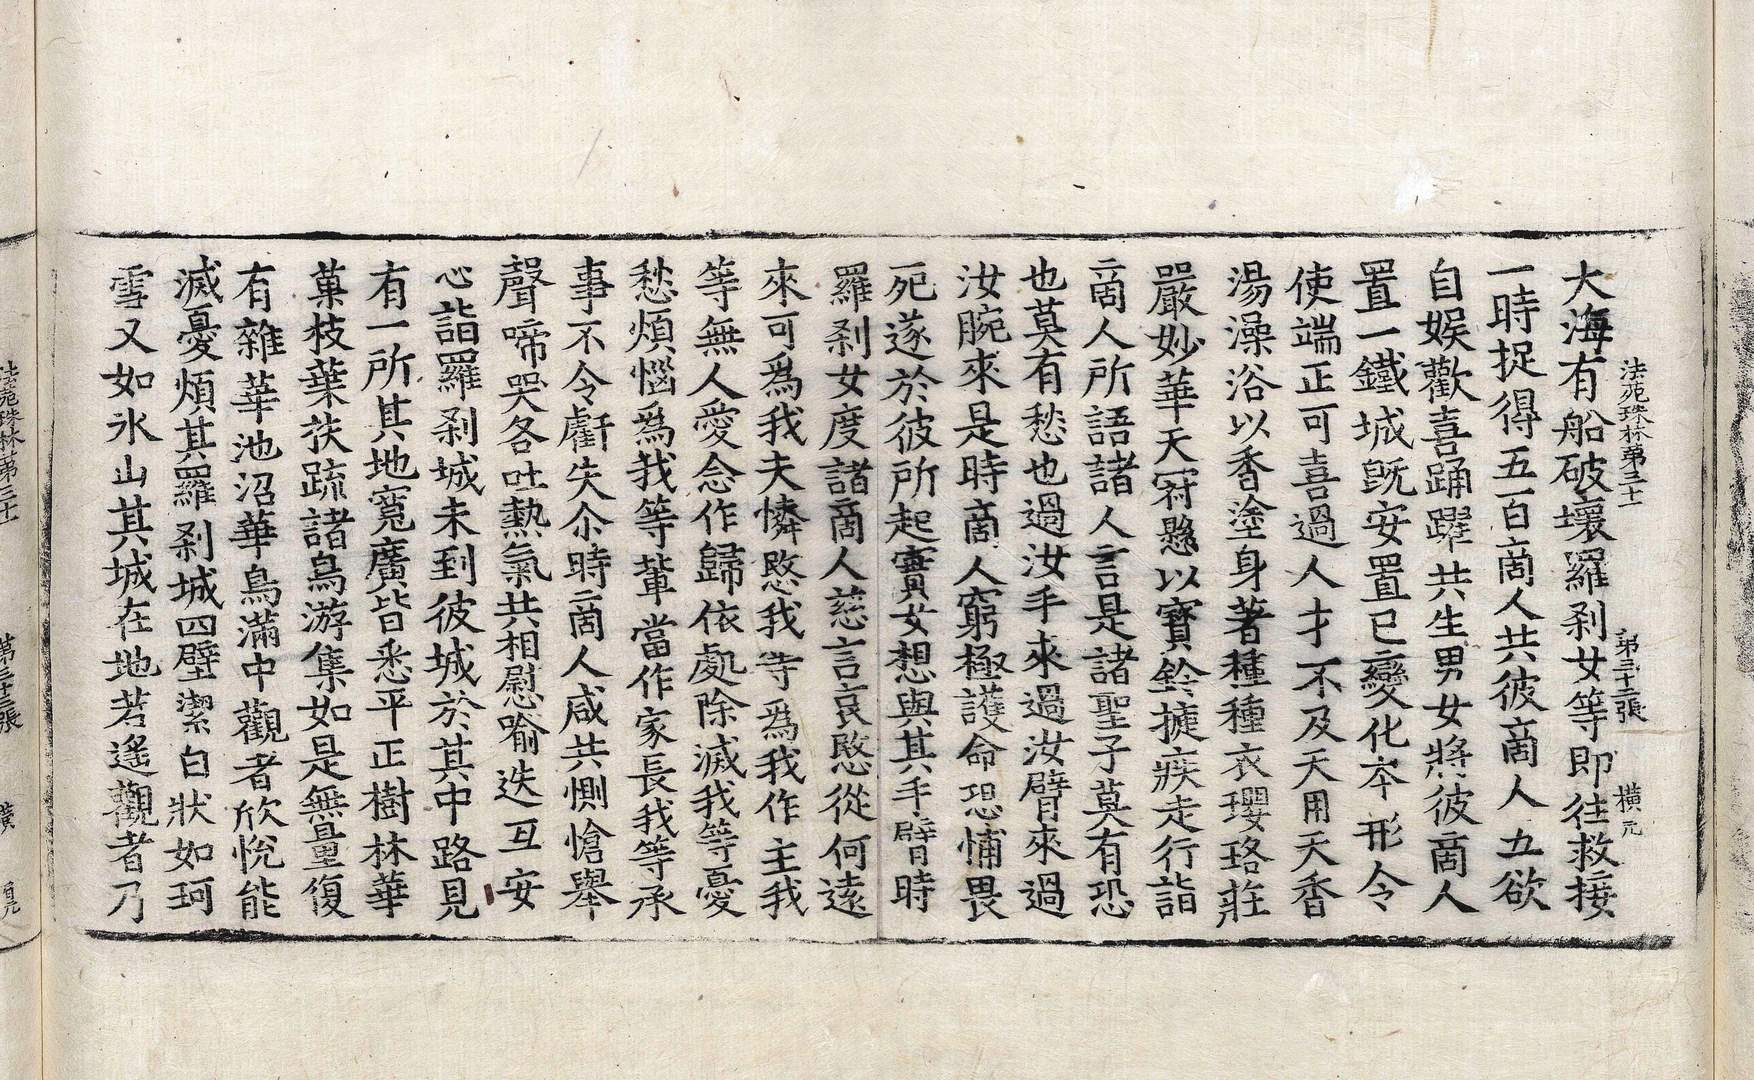 法苑珠林第三十一　第三十二張　橫元
大海有船破壞羅剎女等即往救接
一時捉得五百商人共彼商人五欲
自娛歡喜踊躍共生男女將彼商人
置一鐵城旣安置已變化本形令
使端正可喜過人才不及天用天香
湯澡浴以香塗身著種種衣瓔珞莊
嚴妙華天冠懸以寶鈴揵疾走行詣
商人所語諸人言是諸聖子莫有恐
也莫有愁也過汝手來過汝臂來過
汝腕來是時商人窮極護命恐怖畏
死遂於彼所起實女想與其手臂時
羅剎女度諸商人慈言哀愍從何遠
來可爲我夫憐愍我等爲我作主我
等無人愛念作歸依處除滅我等憂
愁煩惱爲我等輩當作家長我等承
事不令虧失尒時商人咸共惻愴舉
聲啼哭各吐熱氣共相慰喻迭互安
心詣羅剎城未到彼城於其中路見
有一所其地寬廣皆悉平正樹林華
菓枝葉扶疏諸鳥游集如是無量復
有雜華池沼華鳥滿中觀者欣悅能
滅憂煩其羅剎城四壁潔白狀如珂
雪又如氷山其城在地若遙觀者乃
法苑珠林第三十一　第三十三張　橫　元